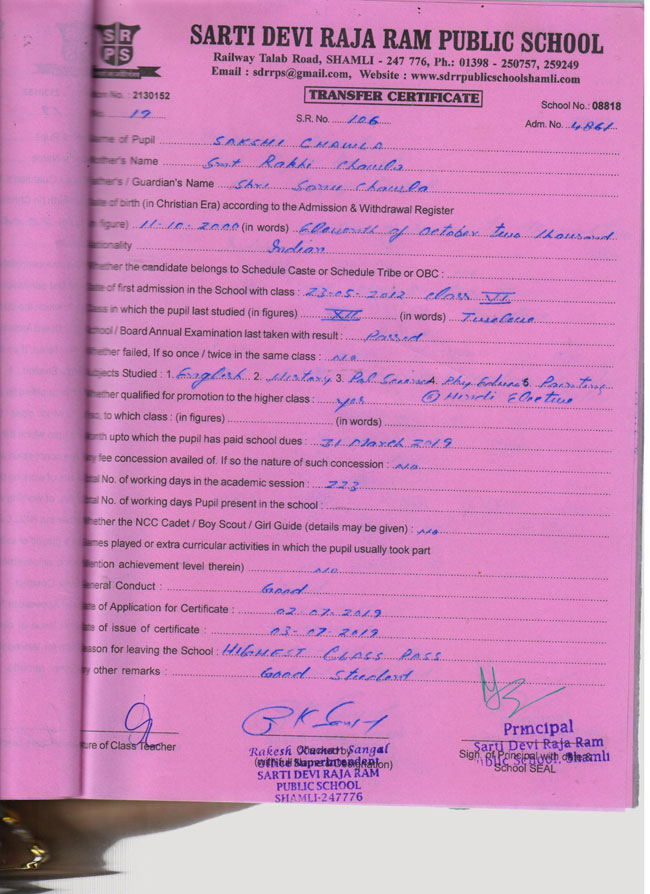 SRPS
SARTI DEVI RAJA RAM PUBLIC SCHOOL
Railway Talab Road, SHAMLI - 247 776, Ph.: 01398 - 250757, 259249
Email : sdrrps@gmail.com, Website : www.sdrrpublicschoolshamli.com
No. : 2130152
TRANSFER CERTIFICATE
School No.: 08818
No. 19 S.R. No. 106 Adm. No. 4861
Name of Pupil SAKSHI CHAWLA
Mother's Name Smt Rakhi Chawla
Father's / Guardian's Name Shri Sonu Chawla
Date of birth (in Christian Era) according to the Admission & Withdrawal Register
(in figure) 11-10-2000 (in words) of October two thousand
Nationality Indian
Whether the candidate belongs to Schedule Caste or Schedule Tribe or OBC :
Date of first admission in the School with class : 23-05-2012 class VI
Class in which the pupil last studied (in figures) XII (in words) Twelove
School / Board Annual Examination last taken with result : Passed
Whether failed, If so once / twice in the same class : No
Subjects Studied : 1. English 2. History 3. Pol Science 4. Phy Educa 5. Painting
Whether qualified for promotion to the higher class : yes 6 Hindi Elective
If so, to which class : (in figures) (in words)
Month upto which the pupil has paid school dues : 31 March 2019
Any fee concession availed of. If so the nature of such concession : No
Total No. of working days in the academic session : 223
Total No. of working days Pupil present in the school :
Whether the NCC Cadet / Boy Scout / Girl Guide (details may be given) : No
Games played or extra curricular activities in which the pupil usually took part
(Mention achievement level therein) No
General Conduct : Good
Date of Application for Certificate : 02-07-2019
Date of issue of certificate : 03-07-2019
Reason for leaving the School : HIGHEST CLASS PASS
Any other remarks : Good
Signature of Class Teacher
Rakesh Kumar Sangal
Office Superintendent
SARTI DEVI RAJA RAM
PUBLIC SCHOOL
SHAMLI-247776
Checked by
(With full Name & Designation)
Principal
Sarti Devi Raja Ram
Public School, Shamli
Sign. of Principal with date &
School SEAL